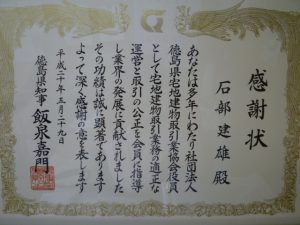 感謝状
石部建雄殿
あなたは多年にわたり社団法人
徳島県宅地建物取引業協会役員
として宅地建物取引業務の適正な
運営と取引の公正を会員に指導
し業界の発展に貢献されました
その功績は誠に顕著であります
よって深く感謝の意を表します
平成二十年五月二十九日
徳島県知事 飯泉嘉門